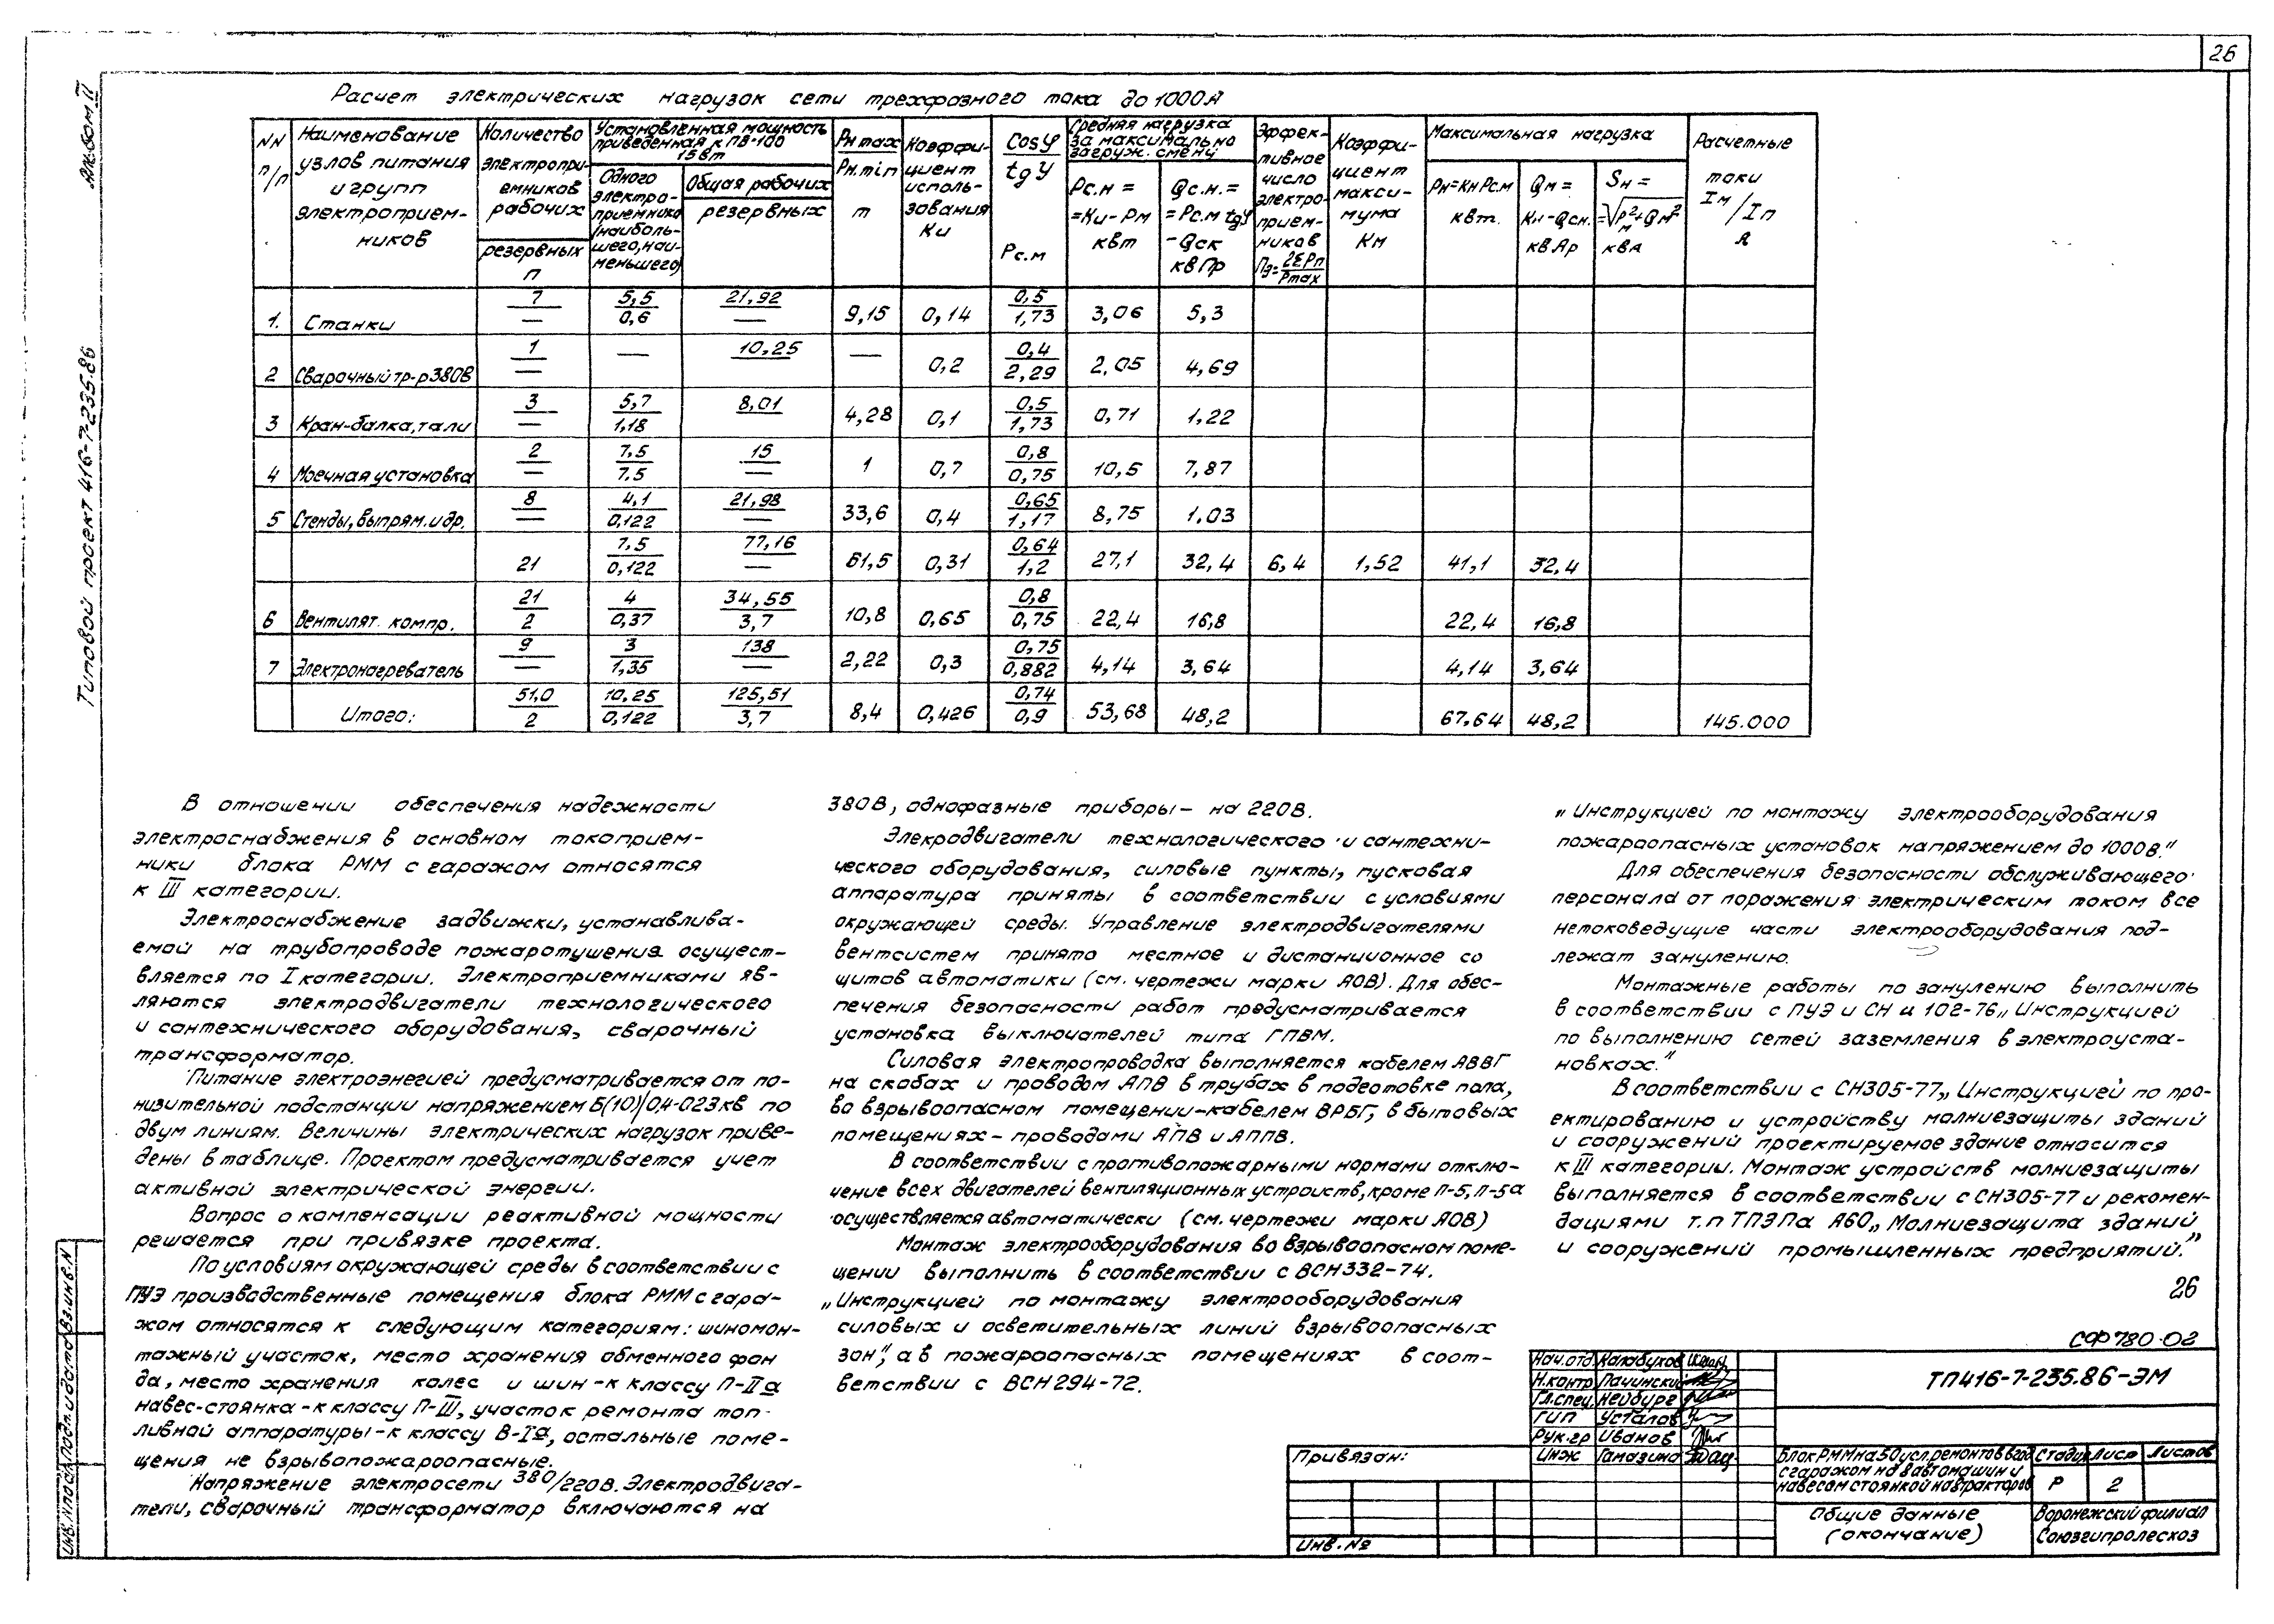 26
Альбом II
Типовой проект 416-7-235.86
Расчет электрических нагрузок сети трехфазного тока до 1000А
NN п/п
Наименование узлов питания и групп электроприемников
Количество электроприемников рабочих / резервных n
Установленная мощность приведенная к ПВ-100
Одного электроприемника (наибольшего, наименьшего)
Общая рабочих / резервных
Рн max / Рн.min m
Коэффициент использования Ки
Cosφ / tgφ Рс.м
Средняя нагрузка за максимально загруж. смену
Рс.м = =Ки-Рм квт
Qс.н.= =Рс.м tgφ -Qск
Эффективное число электроприемников Пэ=2ΣРn/Рmax
Коэффициент максимума Км
Максимальная нагрузка
Рм=Км Рс.м квт.
Qм= Км-Qсм. кв Ар
Sн= =√Р²м+Qм² ква
Расчетные токи Iм/Iп А
1. Станки 7/— 5,5/0,6 21,92/— 9,15 0,14 0,5/1,73 3,06 5,3
2 Сварочный тр-р 380В 1/— — 10,25 — 0,2 0,4/2,29 2,05 4,69
3 Кран-балка, тали 3/— 5,7/1,18 8,01 4,28 0,1 0,5/1,73 0,71 1,22
4 Моечная установка 2/— 7.5/7.5 15/— 1 0,7 0,8/0,75 10,5 7,87
5 Стенды, выпрям. и др. 8/— 4,1/0,122 21,98/— 33,6 0,4 0,65/1,17 8,75 1.03
21 7.5/0,122 77,16/— 61,5 0,31 0,64/1,2 27,1 32,4 6,4 1,52 41,1 32,4
6 Вентилят. компр. 21/2 4/0,37 34,55/3,7 10,8 0,65 0,8/0,75 22,4 16,8 22,4 16,8
7 Электронагреватель 9/— 3/1,35 138/— 2,22 0,3 0,75/0,882 4,14 3,64 4,14 3,64
Итого: 51,0/2 10,25/0,122 125,51/3,7 8,4 0,426 0,74/0,9 53,68 48,2 67,64 48,2 145.000
В отношении обеспечения надежности
электроснабжения в основном токоприем-
ники блока РММ с гаражом относятся
к III категории.
Электроснабжение задвижки, устанавлива-
емой на трубопроводе пожаротушения осущест-
вляется по I категории. Электроприемниками яв-
ляются электродвигатели технологического
и сантехнического оборудования, сварочный
трансформатор.
Питание электроэнегией предусматривается от по-
низительной подстанции напряжением 6(10)/0,4-023кв по
двум линиям. Величины электрических нагрузок приве-
дены в таблице. Проектом предусматривается учет
активной электрической энергии.
Вопрос о компенсации реактивной мощности
решается при привязке проекта.
По условиям окружающей среды в соответствии с
ПУЭ производственные помещения блока РММ с гара-
жом относятся к следующим категориям: шиномон-
тажный участок, место хранения обменного фон
да, место хранения колес и шин-к классу П-IIа
навес-стоянка-к классу П-III, участок ремонта топ-
ливной аппаратуры-к классу В-Iа, остальные поме-
щения не взрывопожароопасные.
Напряжение электросети 380/220В. Электродвига-
тели, сварочный трансформатор включаются на
380В, однофазные приборы- на 220В.
Элекродвигатели технологического и сантехни-
ческого оборудования, силовые пункты, пусковая
аппаратура приняты в соответствии с условиями
окружающей среды. Управление электродвигателями
вентсистем принято местное и дистанционное со
щитов автоматики (см. чертежи марки АОВ). Для обес-
печения безопасности работ предусматривается
установка выключателей типа ГПВМ.
Силовая электропроводка выполняется кабелем АВВГ
на скобах и проводом АПВ в трубах в подготовке пола,
во взрывоопасном помещении-кабелем ВРБГ, в бытовых
помещениях- проводами АПВ и АППВ.
В соответствии с противопожарными нормами отклю-
чение всех двигателей вентиляционных устройств, кроме П-5, П-5а
осуществляется автоматически (см. чертежи марки АОВ)
Монтаж электрооборудования во взрывоопасном поме-
щении выполнить в соответствии с ВСН332-74.
„Инструкцией по монтажу электрооборудования
силовых и осветительных линий взрывоопасных
зон", а в пожароопасных помещениях в соот-
ветствии с ВСН 294-72.
„Инструкцией по монтажу электрооборудования
пожароопасных установок напряжением до 1000В."
Для обеспечения безопасности обслуживающего
персонала от поражения электрическим током все
нетоковедущие части электрооборудования под-
лежат занулению.
Монтажные работы по занулению выполнить
в соответствии с ПУЭ и СН и 102-76„ Инструкцией
по выполнению сетей заземления в электроуста-
новках."
В соответствии с СН305-77„ Инструкцией по про-
ектированию и устройству молниезащиты зданий
и сооружений проектируемое здание относится
к III категории. Монтаж устройств молниезащиты
выполняется в соответствии с СН305-77 и рекомен-
дациями т.п ТПЭПа А60„ Молниезащита зданий
и сооружений промышленных предприятий."
26
СФ780-02
Нач.отд Калабухов
Н.контр Пачински
Гл.спец. Нейбург
ГИП Усталов
Рук.гр Иванов
Инж Гамазина
ТП416-7-235.86-ЭМ
Привязан:
Инв.№
Блок РММ на 50 усл. ремонтов в год
с гаражом на 8 автомашин и
навесом стоянкой на тракторов
Стадия Лист Листов
Р 2
Общие данные
(окончание)
Воронежский филиал
Союзгипролесхоз
Инв.№подл Подп. и дата Взам.инв.N